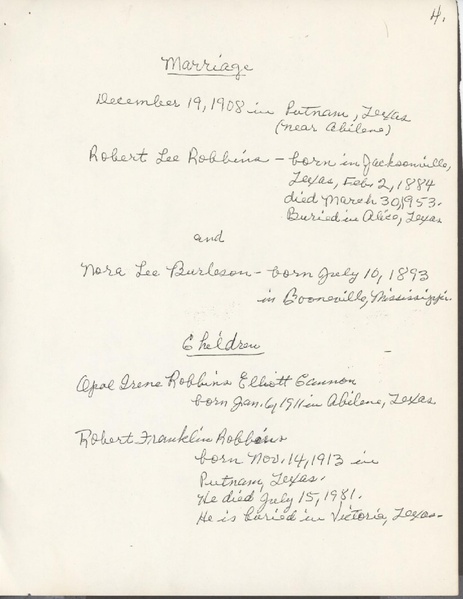 4.
Marriage
December 19, 1908 in Putnam, Texas
(near Abilene)
Robert Lee Robbins - born in Jacksonville,
Texas, Feb. 2, 1884
died March 30, 1953.
Buried in Alice, Texas
and
Nora Lee Burleson - born July 10, 1893
in Booneville, Mississippi.
Children
Opal Irene Robbins Elliott Cannon
born Jan. 6, 1911 in Abilene, Texas
Robert Franklin Robbins
born Nov. 14, 1913 in
Putnam, Texas.
He died July 15, 1981.
He is buried in Victoria, Texas.